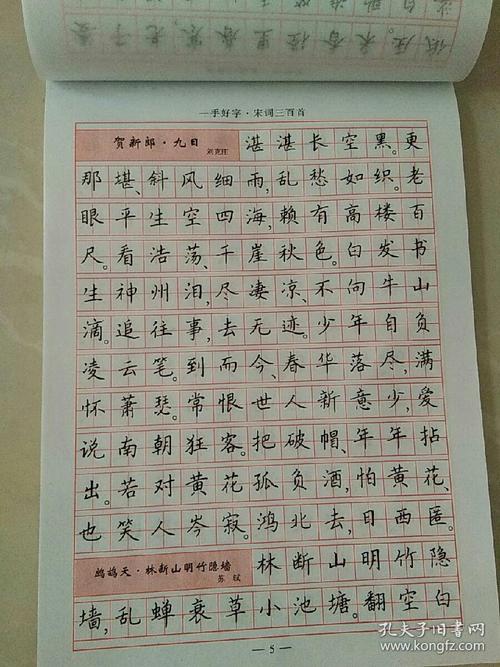 低压。未省经里春寒。老子壹
一手好字·宋词三百首
贺新郎·九日
刘克庄
湛湛长空黑。更
那堪、斜风细雨,乱愁如织。老
眼平生空四海,赖有高楼百
尺。看浩荡、千崖秋色。白发书
生神州泪,尽凄凉、不向牛山
滴。追往事,去无迹。少年自负
凌云笔。到而今、春华落尽,满
怀萧瑟。常恨世人新意少,爱
说南朝狂客。把破帽、年年拈
出。若对黄花孤负酒,怕黄花、
也笑人岑寂。鸿北去,日西匿。
鹧鸪天·林断山明竹隐墙
苏轼
林断山明竹隐
墙,乱蝉衰草小池塘。翻空白
—5—
孔夫子旧书网
www.kongfz.com